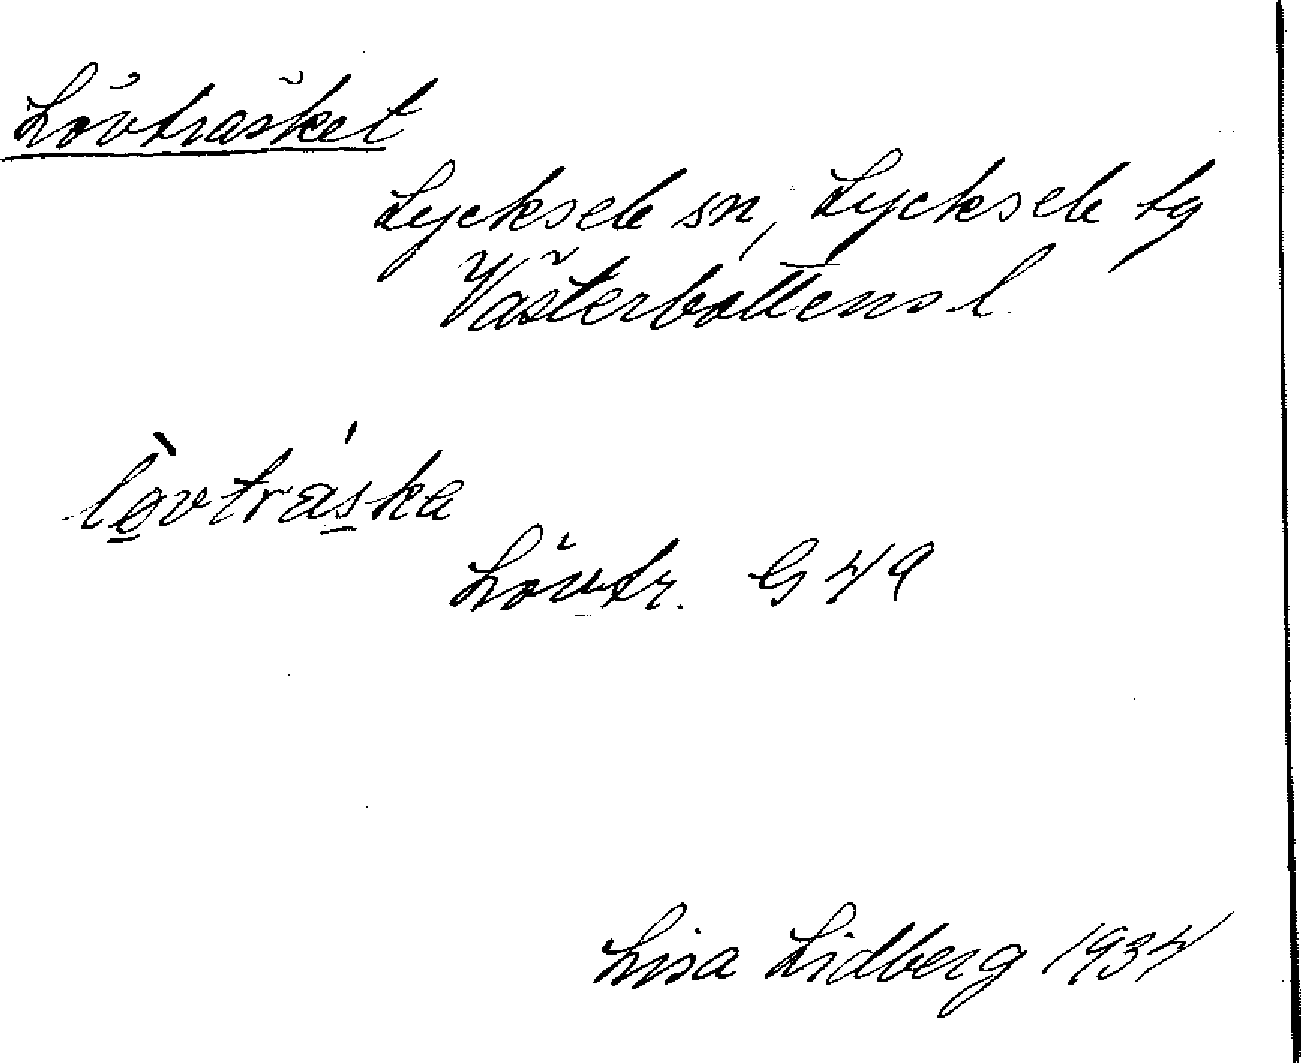 Lövträsket
Lycksele sn, Lycksele tg
Västerbottens l.
lövtráska
Lövtr. G 49
Lisa Lidberg 1934